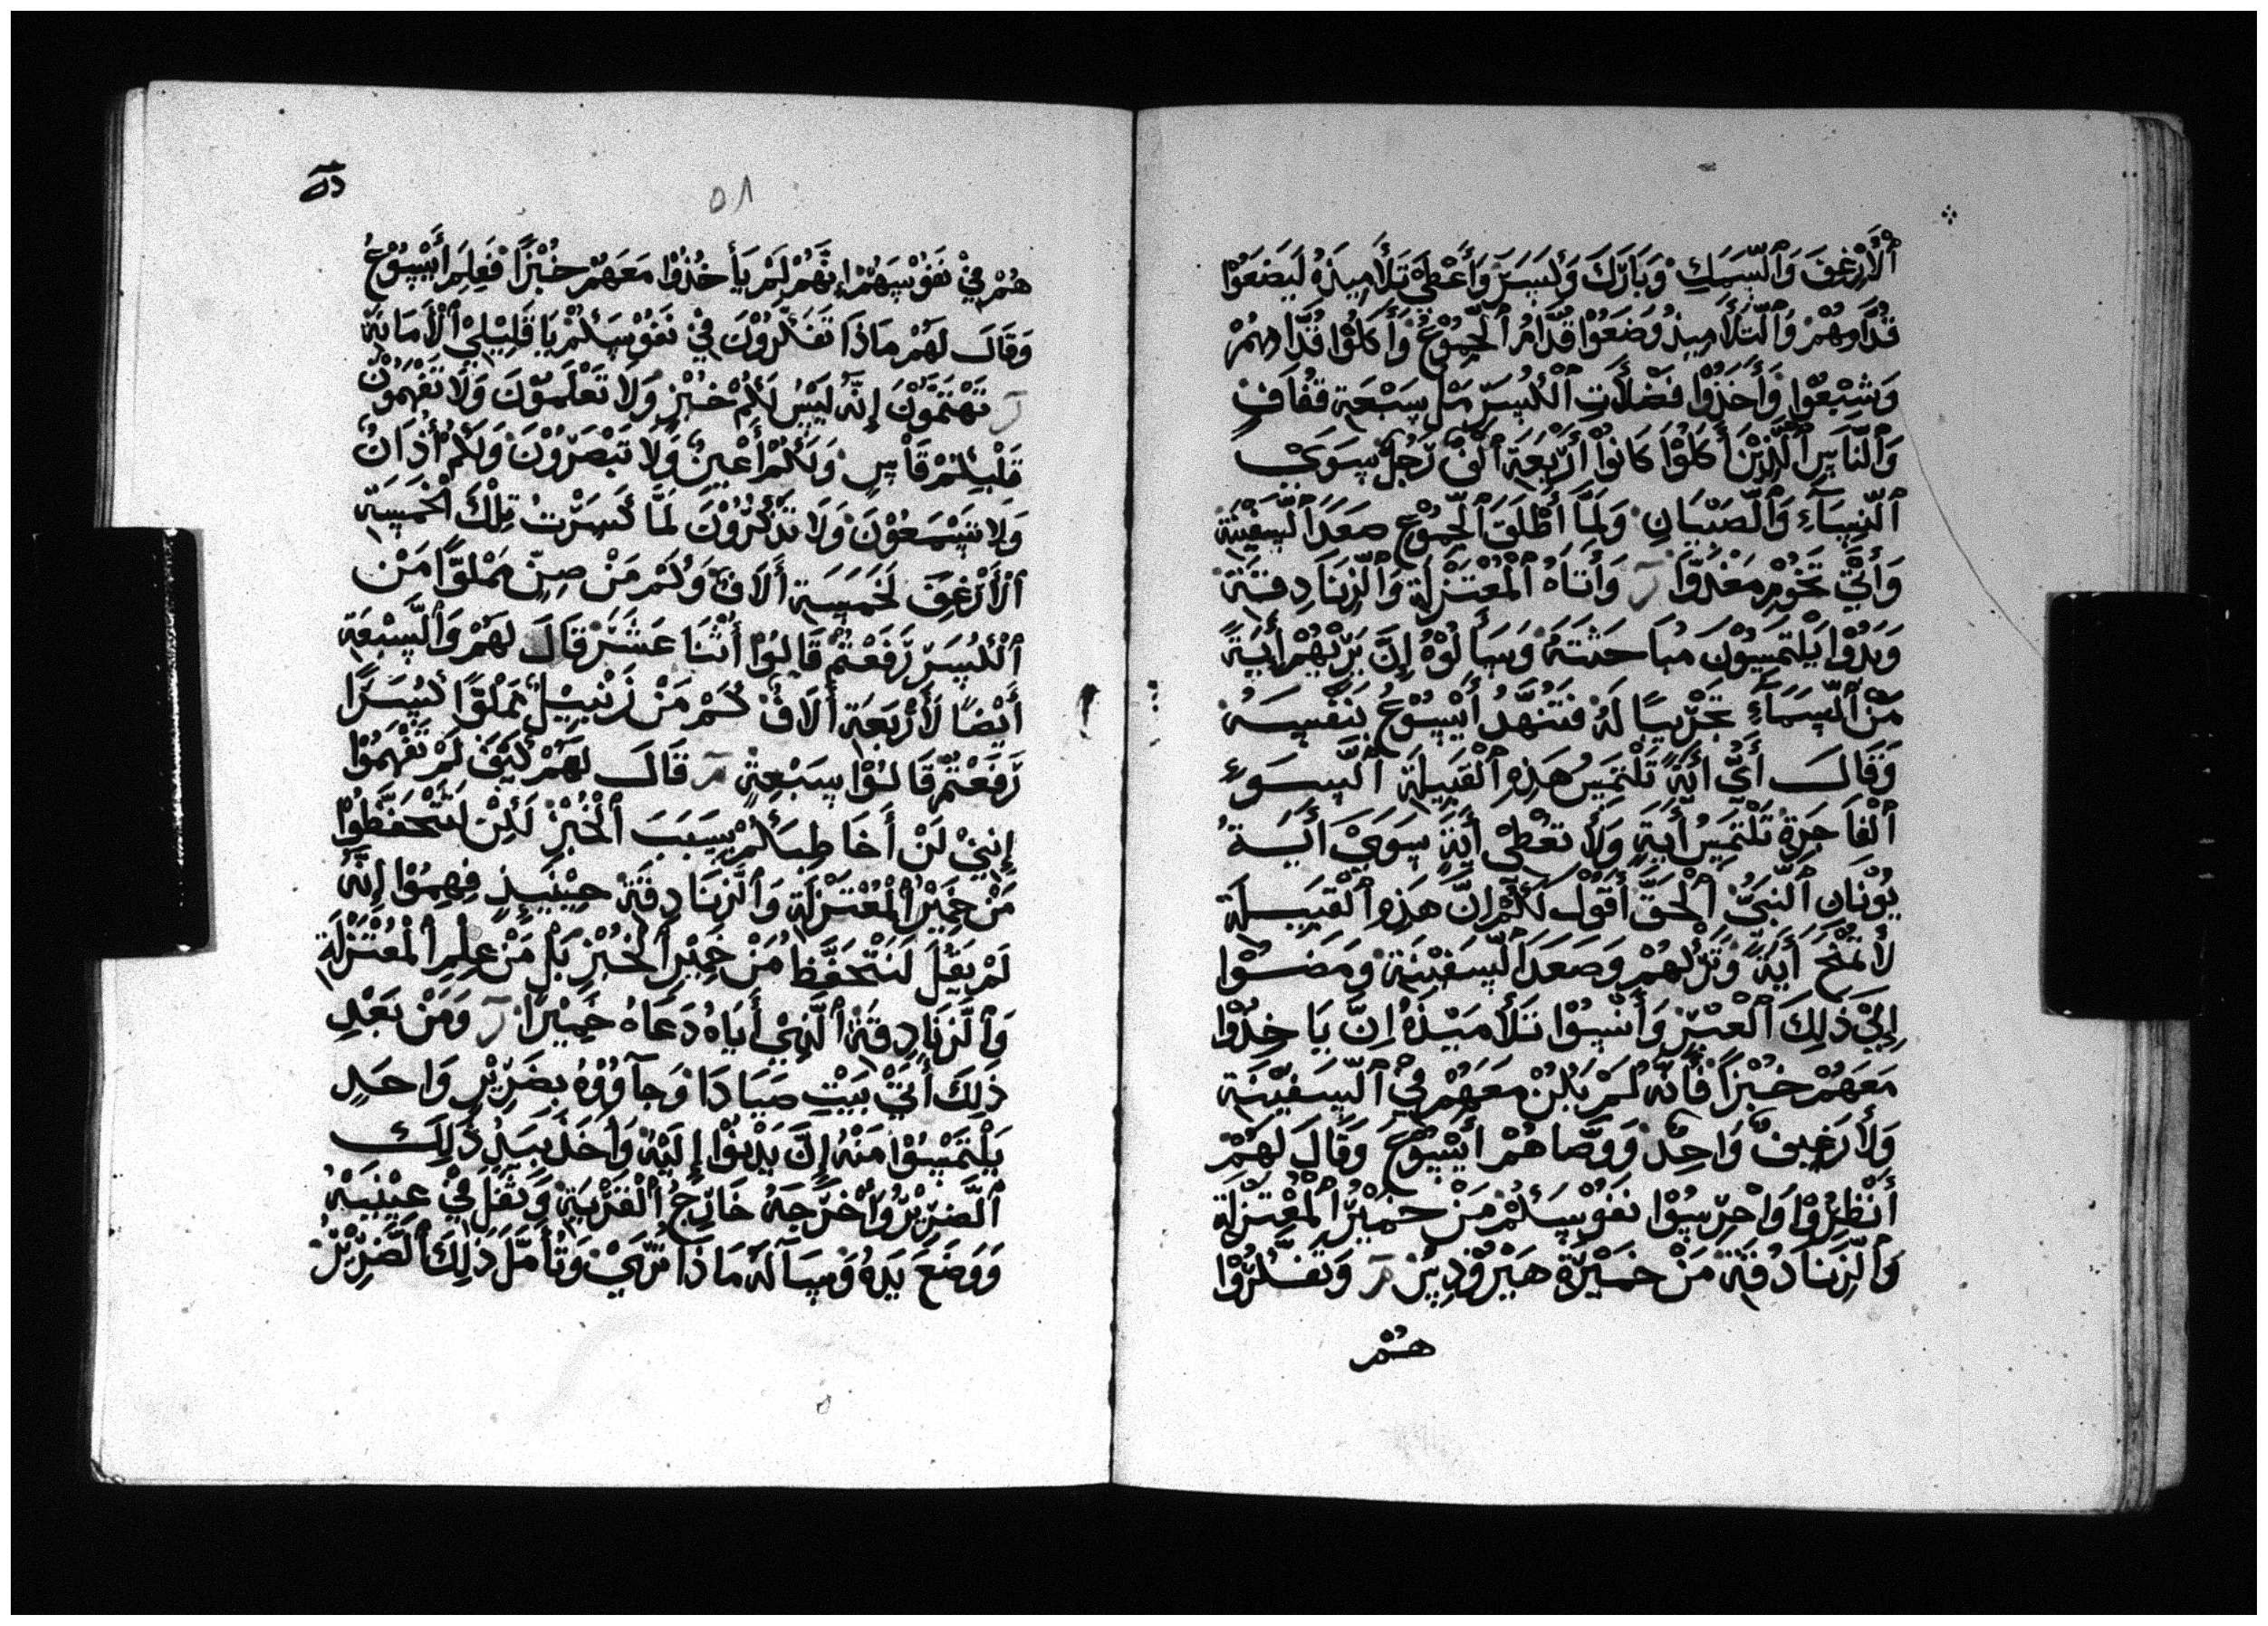 ٱلْأَرْغِفَ وَٱلسَّمَكِ وَبَارَكَ وَكَسَرَ وَأَعْطَى تَلَامِيذَهُ لَيَضَعُوْا
قُدَّامَهُمْ وَٱلتَّلَامِيذُ وَضَعُوْا قُدَّامُ ٱلْجُمُوْعُ وَأَكَلُوْا قُدَّامهمْ
وَشَبِعُوْا وَأَخَذُوْا فَضَلَاتِ ٱلْكُسَرْ مَلْ سَبْعَة قفَاف
وَٱلنَّاسِ ٱلَّذِيْنَ أَكَلُوْا كَانُوْا أَرْبَعَةَ ٱلْف رَجُل سِوَيْ
ٱلنِّسَآءِ وَٱلصِّبْيَانِ وَلَمَّا أَطْلَقَ ٱلْجُمُوْع صَعَدَ ٱلسَّفِيْنَة
وَأَتَيْ تَخُوْمِ مَغْدُوَّا وَأَتَاهُ ٱلْمُعْتَزِلَة وَٱلزَّنَادِقَة
وَبَدُوْا يَلْتَمِسُوْنَ مُبَاحَثَتَهُ وَسَأَلُوْهُ إِنَّ يَرِّيْهُمْ أَيَةً
مَنْ ٱلسَّمَآءِ تَجْرِيْبًا لَهُ فَتَنَهَّدُ أَيْسُوْعُ بِنَفْسِهُ
وَقَالَ أَيُّ أَيَةً تَلْتَمِسُ هَذِهِ ٱلْقَبِيلَة ٱلسَّوَءِ
ٱلْفَاجِرَةُ تَلْتَمِسُ أَيَةٍ وَلَا تَعْطَى أَيَةً سِوَيْ أَيَةُ
يُوْنَانِ ٱلنَّبِيُّ ٱلْحَقَّ أَقُوْلُ لَكُمْ إِنَّ هَذِهِ ٱلْقَبِيلَة
لَا تُمْنَحْ أَيَةً وَتَرَكَهُمْ وَصَعَدَ ٱلسَّفِيْنَةَ وَمَضَوْا
إِلَيْ ذَلِكَ ٱلْعَبْرِ وَأَنْسِيُوْا تَلَامِيْذَهُ إِنَّ يَاخِذُوْا
مَعَهُمْ خُبْزًا فَأَنَّه لَمْ يَكُنْ مَعَهُمْ فِيْ ٱلسَّفِيْنَة
وَلَا رَغِيفٌ وَاحِدٌ وَوَصَّاهُمْ أَيْسُوْعَ وَقَالَ لَهُمْ
أُنْظُرُوْا وَاحْرِسُوْا نَفُوْسَكُمْ مَنْ خَمِيْرُ ٱلْمُعْتَزِلَة
وَٱلزَّنَادِقَة مَنْ خَمِيْرَة هَيْرُوْدِسْ وَتَفَكَّرُوْا
هُمْ
٥٨
هُمْ فِيْ نَفُوْسِهُمْ إِنَّهُمْ لَمْ يَأخُذُوْا مَعَهُمْ خُبْزًا فَعَلِمَ أَيْسُوْعُ
وَقَالَ لَهُمْ مَاذَا تَفَكَّرُوْنَ فِيْ نَفُوْسِكُمْ يَا قَلِيْلِيْ ٱلْأَمَانَة
تَهْتَمُّوْنَ إِنَّه لَيْسُ لَكُمْ خُبْزِ وَلَا تَعْلَمَوْنَ وَلَا تَفْهَمُوْنَ
قَلْبَكُمْ قَاسٍ وَلَكُمْ أَعْيِنٌ وَلَا تَبْصَرُوْنَ وَلَكُمْ أُذَانٌ
وَلَا تَسْمَعُوْنَ وَلَا تَذْكُرُوْنَ لَمَّا كَسَرْتُ تِلْكَ الْخَمْسَة
ٱلْأَرْغِفَ لَخَمْسَة أَلَاف وَكُمْ مَنْ صِنِّ مَمْلوًّا مَنْ
ٱلْكُسَرْ رَفَعْتُمْ قَالُوْا أُثْنَا عَشَرَ قَالَ لَهُمْ وَٱلسَّبْعَة
أَيْضًا لَأَرْبَعَة أَلَاف كُمْ مَنْ زَنْبِيْلٌ مَمْلوًّا كُسَرًا
رَفَعْتُمْ قَالُوْا سَبْعَةٍ قَالَ لَهُمْ كَيْفَ لَمْ تَفْهَمُوْا
إِنِيْ لَنْ أَخَاطِبَكُمْ بِسَبَبَ ٱلْخُبْز لَكِنْ لَتَتَحَفَّظُوْا
مَنْ خَمِيْرُ ٱلْمُعْتَزِلَة وَٱلزَّنَادِقَة حِيْنَيِذٍ فَهِمُوْا إِنَّهُ
لَمْ يَقُلَ لَنَتْحَفَّظ مَنْ خَمِيْر ٱلْخُبْزِ بَلْ مَنْ عِلِمِ ٱلْمُعْتَزِلَة
وَٱلزَّنَادِقَة ٱلَّذِيْ أَيَاهُ دَعَاهُ خَمِيْرًا وَمَنْ بَعْدِ
ذَلِكَ أَتَيْ بَيْتِ صَيَادَا وَجَآوُوْهُ بِضَرِيْرٍ وَاحَدٍ
يَلْتَمِسُوْا مَنْهُ إِنَّ يَدْنُوْا إِلَيْهُ وَأَخَذَ بِيَدُ ذَلِكَ
ٱلضَّرِيْرُ وَأَخْرَجَهُ خَارِجُ ٱلْقَرْيَة وَتَفَلَ فِيْ عِيْنَيْهُ
وَوَضَعَ يَدهُ وَسَآلَهُ مَاذَا تَرَيْ وَتُأَمَّلَ ذَلِكَ ٱلضَّرِيْرُ